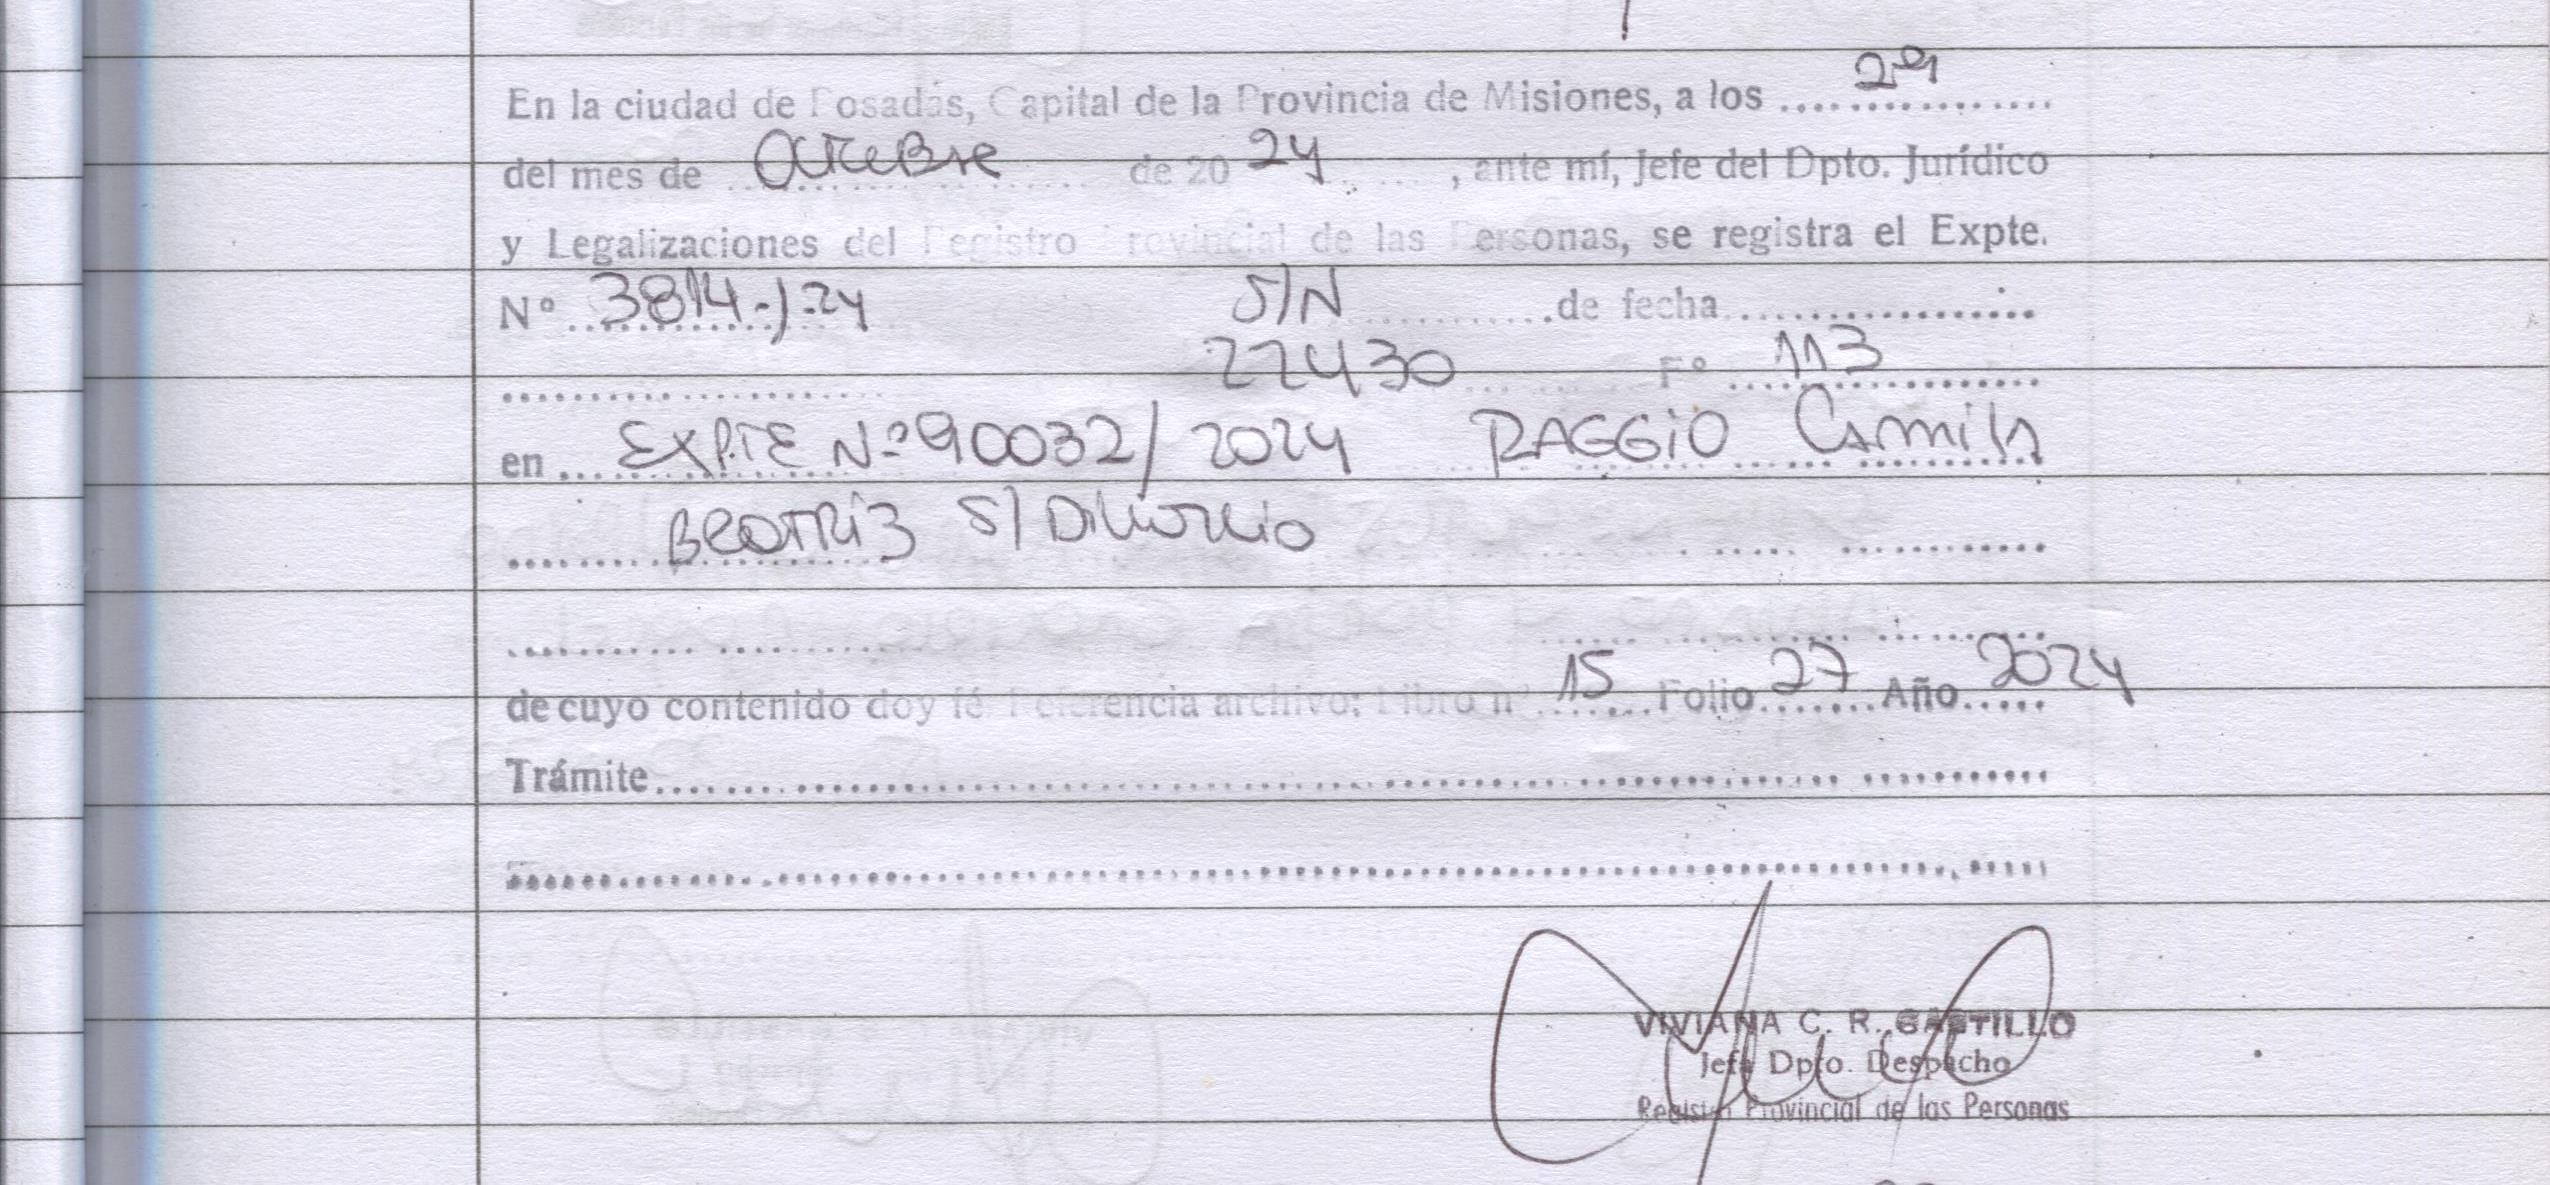 En la ciudad de Posadas, Capital de la Provincia de Misiones, a los 29
del mes de Octubre de 20 24, ante mí, Jefe del Dpto. Jurídico
y Legalizaciones del Registro Provincial de las Personas, se registra el Expte.
Nº 3814-/-24 S/N de fecha
22430 Fº 113
en EXPTE Nº 90032/2024 RAGGIO Camila
BEATRIZ S/ Divorcio
de cuyo contenido doy fé. Referencia archivo: Libro nº 15 Folio 27 Año 2024
Trámite
VIVIANA C. R. CASTILLO
Jefa Dpto. Despacho
Registro Provincial de las Personas